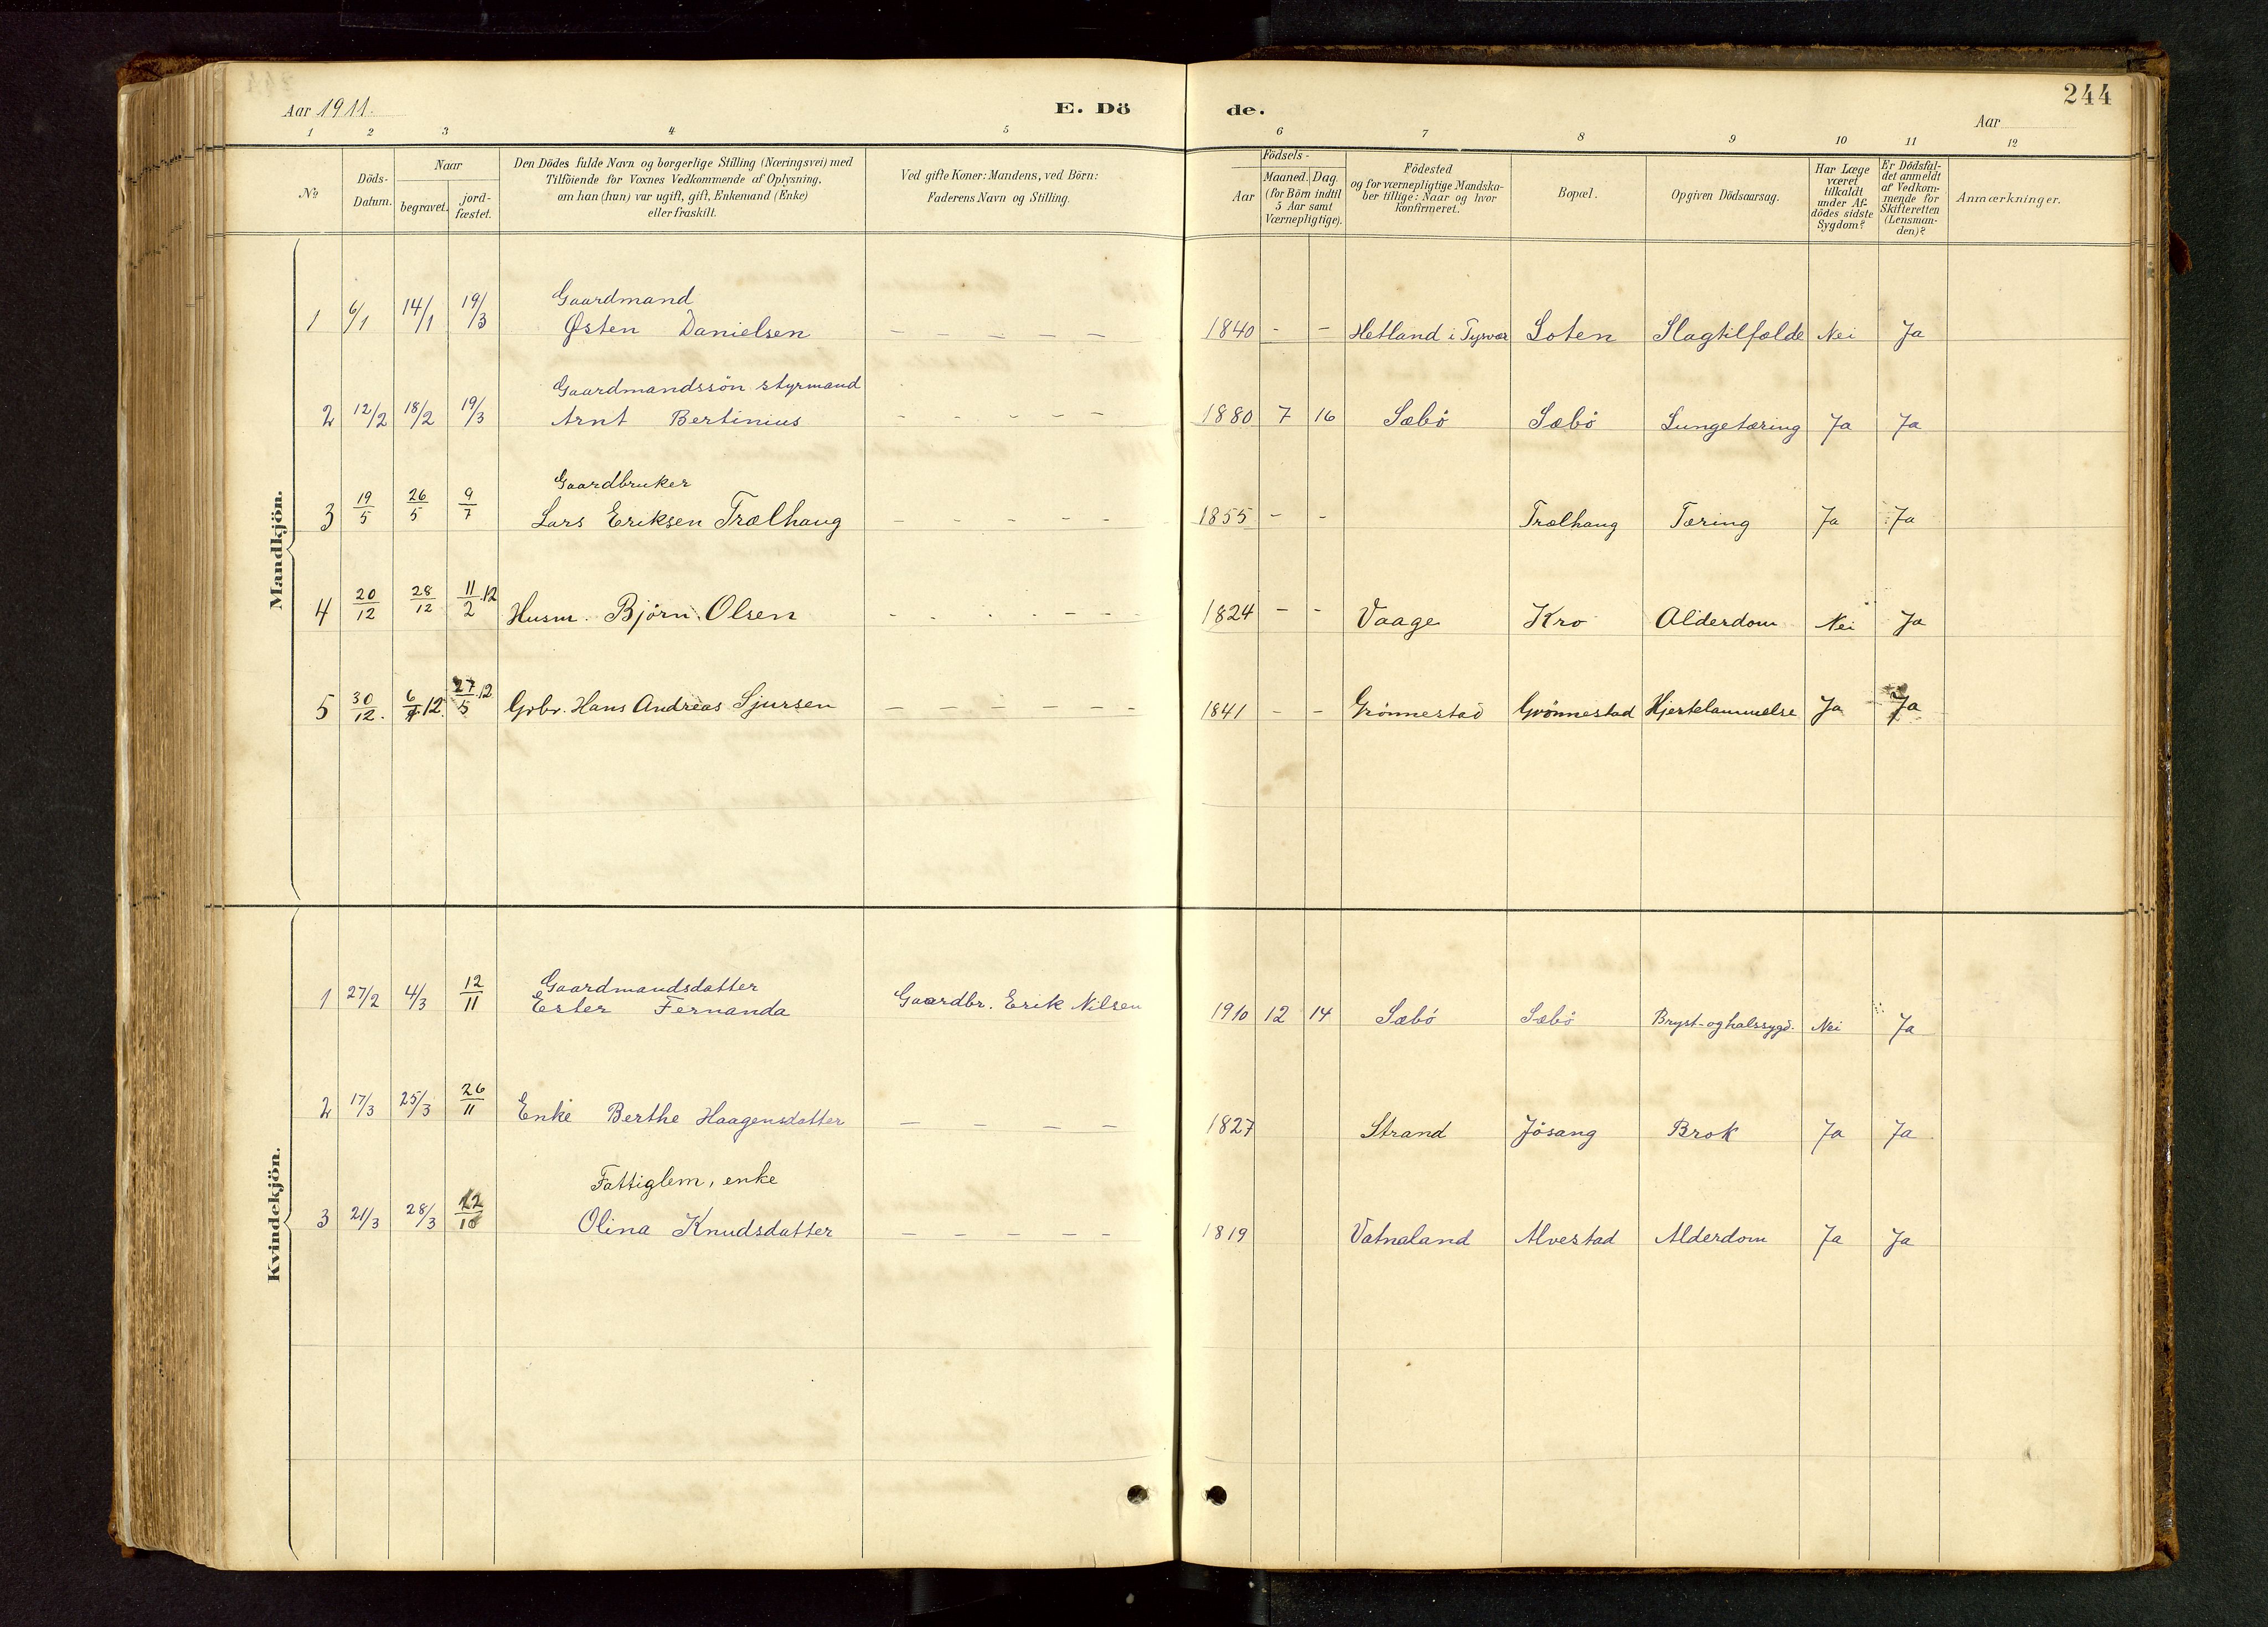 244
Aar 1911.
E. Döde.
Aar
1 2 3 4 5 6 7 8 9 10 11 12
No
Döds-Datum.
Naar
begravet.
jord-fæstet.
Den Dödes fulde Navn og borgerlige Stilling (Næringsvei) med
Tilföiende for Voxnes Vedkommende af Oplysning,
om han (hun) var ugift, gift, Enkemand (Enke)
eller fraskilt.
Ved gifte Koner: Mandens, ved Börn:
Faderens Navn og Stilling.
Födsels-
Aar
Maaned. Dag.
(for Börn indtil
5 Aar samt
Værnepligtige).
Födested
og for værnepligtige Mandska-
ber tillige: Naar og hvor
konfirmeret.
Bopæl.
Opgiven Dödsaarsag.
Har Læge
været
tilkaldt
under Af-
dödes sidste
Sygdom?
Er Dödsfal-
det anmeldt
af Vedkom-
mende for
Skifteretten
(Lensman-
den)?
Anmærkninger.
Mandkjön.
Gaardmand
1 6/1 14/1 19/3 Østen Danielsen – – – – – 1840 – – Hetland i Tysvær Loten Slagtilfælde Nei Ja
Gaardmandssön styrmand
2 12/2 18/2 19/3 Arnt Bertinius – – – – – 1880 7 16 Sæbö Sæbö Lungetæring Ja Ja
Gaardbruker
3 19/5 26/5 9/7 Lars Eriksen Trælhaug – – – – – 1855 – – Trælhaug Tæring Ja Ja
4 20/12 28/12 11/2.12 Husm. Björn Olsen – – – – – 1824 – – Vaage Kro Alderdom Nei Ja
5 30/12. 6/1 12. 27/5.12 Grbr. Hans Andreas Sjursen – – – – – – – 1841 – – Grönnestad Grönnestad Hjertelammelse Ja Ja
Kvindekjön.
Gaardmandsdatter
1 27/2 4/3 12/11 Ester Fernanda Gaardbr. Erik Nilsen 1910 12 14 Sæbö Sæbö Bryst- og halssygd. Nei Ja
2 17/3 25/3 26/11 Enke Berthe Haagensdatter – – – – 1827 Strand Jösang Brok Ja Ja
Fattiglem, enke
3 21/3 28/3 Olina Knudsdatter – – – – – 1819 Vatnaland Alvestad Alderdom Ja Ja